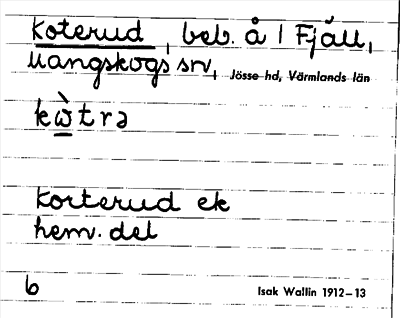 Koterud, beb. å 1 Fjäll,
Mangskogs sn, Jösse hd, Värmlands län
kὼtrə
Korterud ek
hem. del
6 Isak Wallin 1912–13